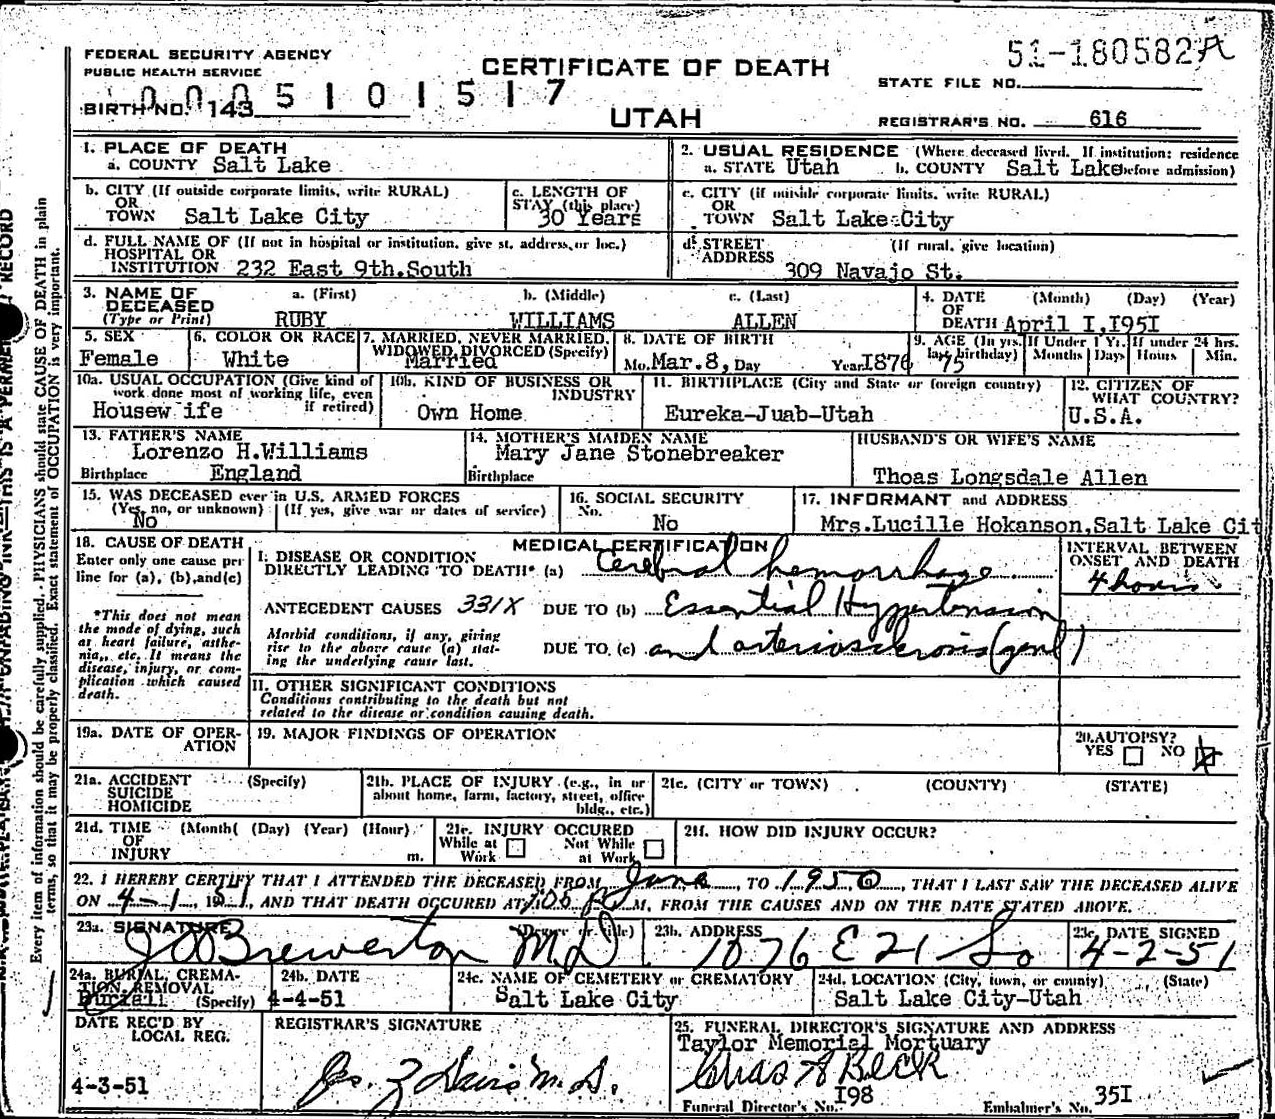 51-180582A
FEDERAL SECURITY AGENCY
PUBLIC HEALTH SERVICE
CERTIFICATE OF DEATH
STATE FILE NO.
0005101517
BIRTH NO. 143
UTAH
REGISTRAR'S NO. 616
1. PLACE OF DEATH
a. COUNTY Salt Lake
2. USUAL RESIDENCE (Where deceased lived. If institution: residence before admission)
a. STATE Utah b. COUNTY Salt Lake
b. CITY (If outside corporate limits, write RURAL)
OR
TOWN Salt Lake City
c. LENGTH OF
STAY (this place)
30 Years
c. CITY (if outside corporate limits. write RURAL)
OR
TOWN Salt Lake City
d. FULL NAME OF (If not in hospital or institution, give st. address, or loc.)
HOSPITAL OR
INSTITUTION 232 East 9th.South
d. STREET (If rural, give location)
ADDRESS
309 Navajo St.
3. NAME OF
DECEASED
(Type or Print)
a. (First) b. (Middle) c. (Last)
RUBY WILLIAMS ALLEN
4. DATE (Month) (Day) (Year)
OF
DEATH April I,I95I
5. SEX
Female
6. COLOR OR RACE
White
7. MARRIED, NEVER MARRIED,
WIDOWED, DIVORCED (Specify)
Married
8. DATE OF BIRTH
Mo. Mar.8, Day Year I876
9. AGE (In yrs. last birthday) If Under 1 Yr. If under 24 hrs.
75 Months Days Hours Min.
10a. USUAL OCCUPATION (Give kind of
work done most of working life, even
if retired)
Housew ife
10b. KIND OF BUSINESS OR
INDUSTRY
Own Home
11. BIRTHPLACE (City and State or foreign country)
Eureka-Juab-Utah
12. CITIZEN OF
WHAT COUNTRY?
U.S.A.
13. FATHER'S NAME
Lorenzo H.Williams
Birthplace England
14. MOTHER'S MAIDEN NAME
Mary Jane Stonebreaker
Birthplace
HUSBAND'S OR WIFE'S NAME
Thoas Longsdale Allen
15. WAS DECEASED ever in U.S. ARMED FORCES
(Yes, no, or unknown) (If yes, give war or dates of service)
No
16. SOCIAL SECURITY
No.
No
17. INFORMANT and ADDRESS
Mrs.Lucille Hokanson,Salt Lake Cit
18. CAUSE OF DEATH
Enter only one cause per
line for (a), (b),and(c)
*This does not mean
the mode of dying, such
as heart failure, asthe-
nia, etc. It means the
disease, injury, or com-
plication which caused
death.
MEDICAL CERTIFICATION
I. DISEASE OR CONDITION
DIRECTLY LEADING TO DEATH* (a) Cerebral hemorrhage
INTERVAL BETWEEN
ONSET AND DEATH
4 hours
ANTECEDENT CAUSES 331X DUE TO (b) Essential Hypertension
Morbid conditions, if any, giving
rise to the above cause (a) stat-
ing the underlying cause last.
DUE TO (c) and arteriosclerosis (genl)
II. OTHER SIGNIFICANT CONDITIONS
Conditions contributing to the death but not
related to the disease or condition causing death.
19a. DATE OF OPER-
ATION
19. MAJOR FINDINGS OF OPERATION
20. AUTOPSY?
YES NO
21a. ACCIDENT (Specify)
SUICIDE
HOMICIDE
21b. PLACE OF INJURY (e.g., in or
about home, farm, factory, street, office
bldg., etc.)
21c. (CITY or TOWN) (COUNTY) (STATE)
21d. TIME (Month( (Day) (Year) (Hour)
OF
INJURY m.
21e. INJURY OCCURED
While at Work Not While at Work
21f. HOW DID INJURY OCCUR?
22. I HEREBY CERTIFY THAT I ATTENDED THE DECEASED FROM June, TO 1950, THAT I LAST SAW THE DECEASED ALIVE
ON 4-1, 1951, AND THAT DEATH OCCURED AT P M, FROM THE CAUSES AND ON THE DATE STATED ABOVE.
23a. SIGNATURE (Degree or title)
Brewerton M.D.
23b. ADDRESS
1076 E 21 So
23c. DATE SIGNED
4-2-51
24a. BURIAL, CREMA-
TION, REMOVAL
Buriall (Specify)
24b. DATE
4-4-51
24c. NAME OF CEMETERY or CREMATORY
Salt Lake City
24d. LOCATION (City, town, or county) (State)
Salt Lake City-Utah
DATE REC'D BY
LOCAL REG.
4-3-51
REGISTRAR'S SIGNATURE
Davis M.D.
25. FUNERAL DIRECTOR'S SIGNATURE AND ADDRESS
Taylor Memorial Mortuary
Chas A Beck
Funeral Director's No. I98 Embalmer's No. 35I
Every item of information should be carefully supplied. PHYSICIANS should state CAUSE OF DEATH in plain
terms, so that it may be properly classified. Exact statement of OCCUPATION is very important.
UNFADING INK—THIS IS A PERMANENT RECORD